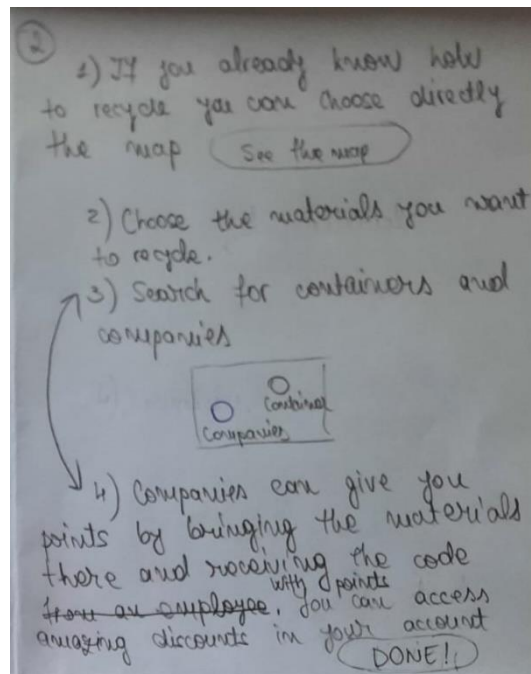 2
1) If you already know how
to recycle you can choose directly
the map See the map
2) Choose the materials you want
to recycle.
3) Search for containers and
companies
Container
Companies
4) Companies can give you
points by bringing the materials
there and receiving the code
with points
from an employee, you can access
amazing discounts in your account
DONE!